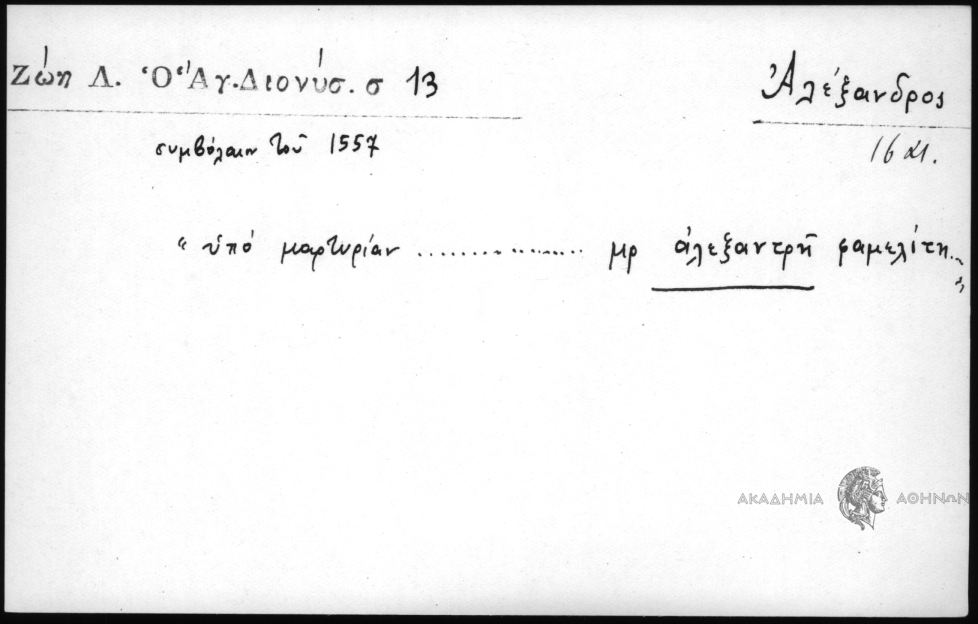 Ζώη Λ. Ὁ Ἅγ. Διονύσ. σ 13
Ἀλέξανδρος
συμβόλαιον τοῦ 1557
16 αι.
" ὑπό μαρτυρίαν ................ μρ ἀλεξαντρῆ φαμελίτη.. "
ΑΚΑΔΗΜΙΑ ΑΘΗΝΩΝ